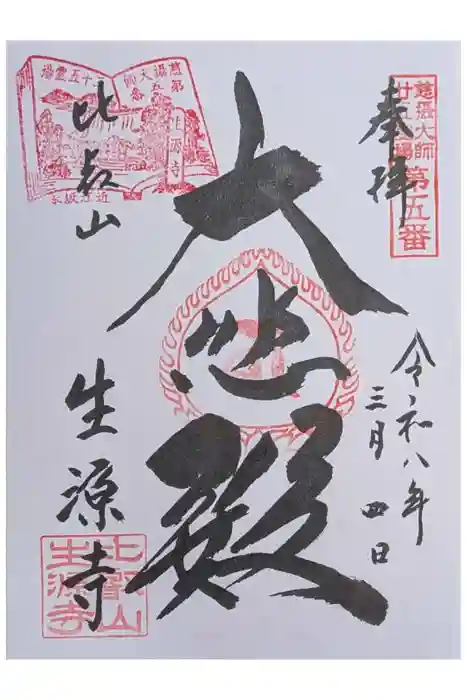 奉拝
慈攝大師
廿五霊場
第五番
大悲殿
令和八年
三月四日
比叡山
生源寺
生源寺
近江坂本
比叡山
生源寺